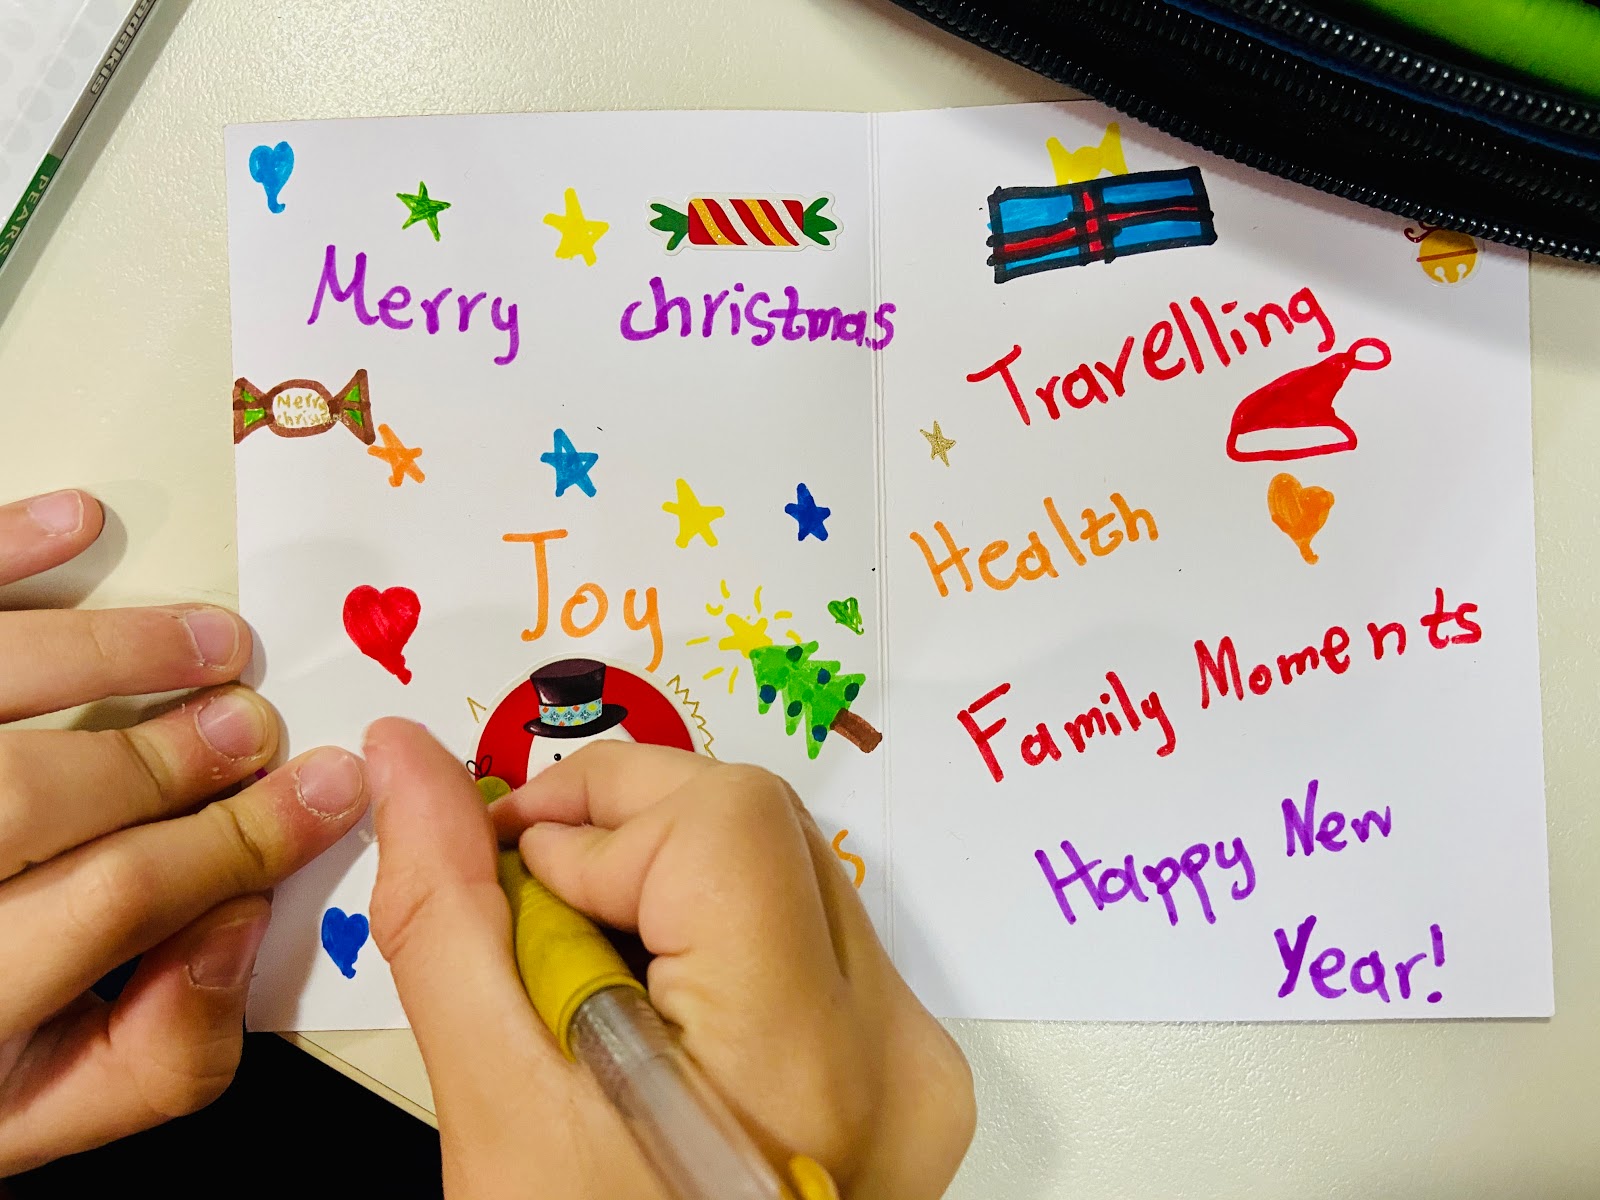 Merry christmas
Merry
christmas
Joy
s
Travelling
Health
Family Moments
Happy New
Year!
PEARS